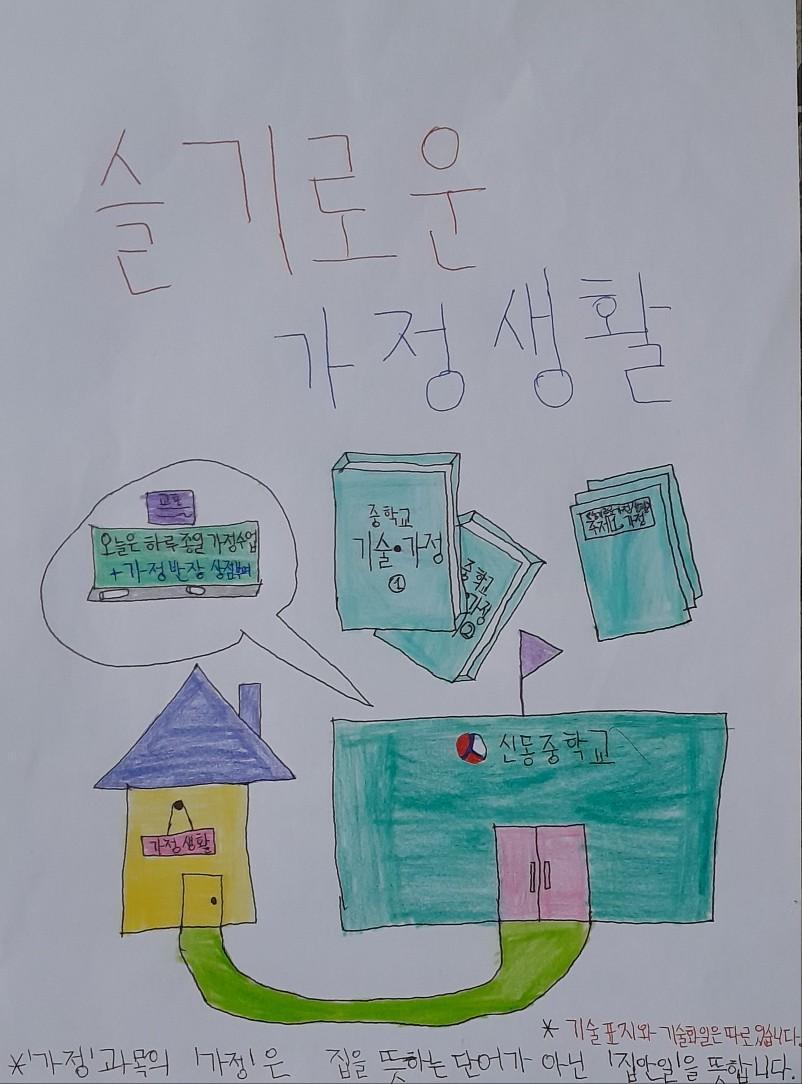 슬기로운
가정생활
교훈
오늘은 하루종일 가정수업
+가정반장 상점부여
중학교
기술·가정
①
중학교
가정
②
주제1 가정
신동중학교
가정생활
* 기술 표지와 기술화일은 따로 있습니다.
*'가정'과목의 '가정'은 집을 뜻하는 단어가 아닌 '집안일'을 뜻합니다.